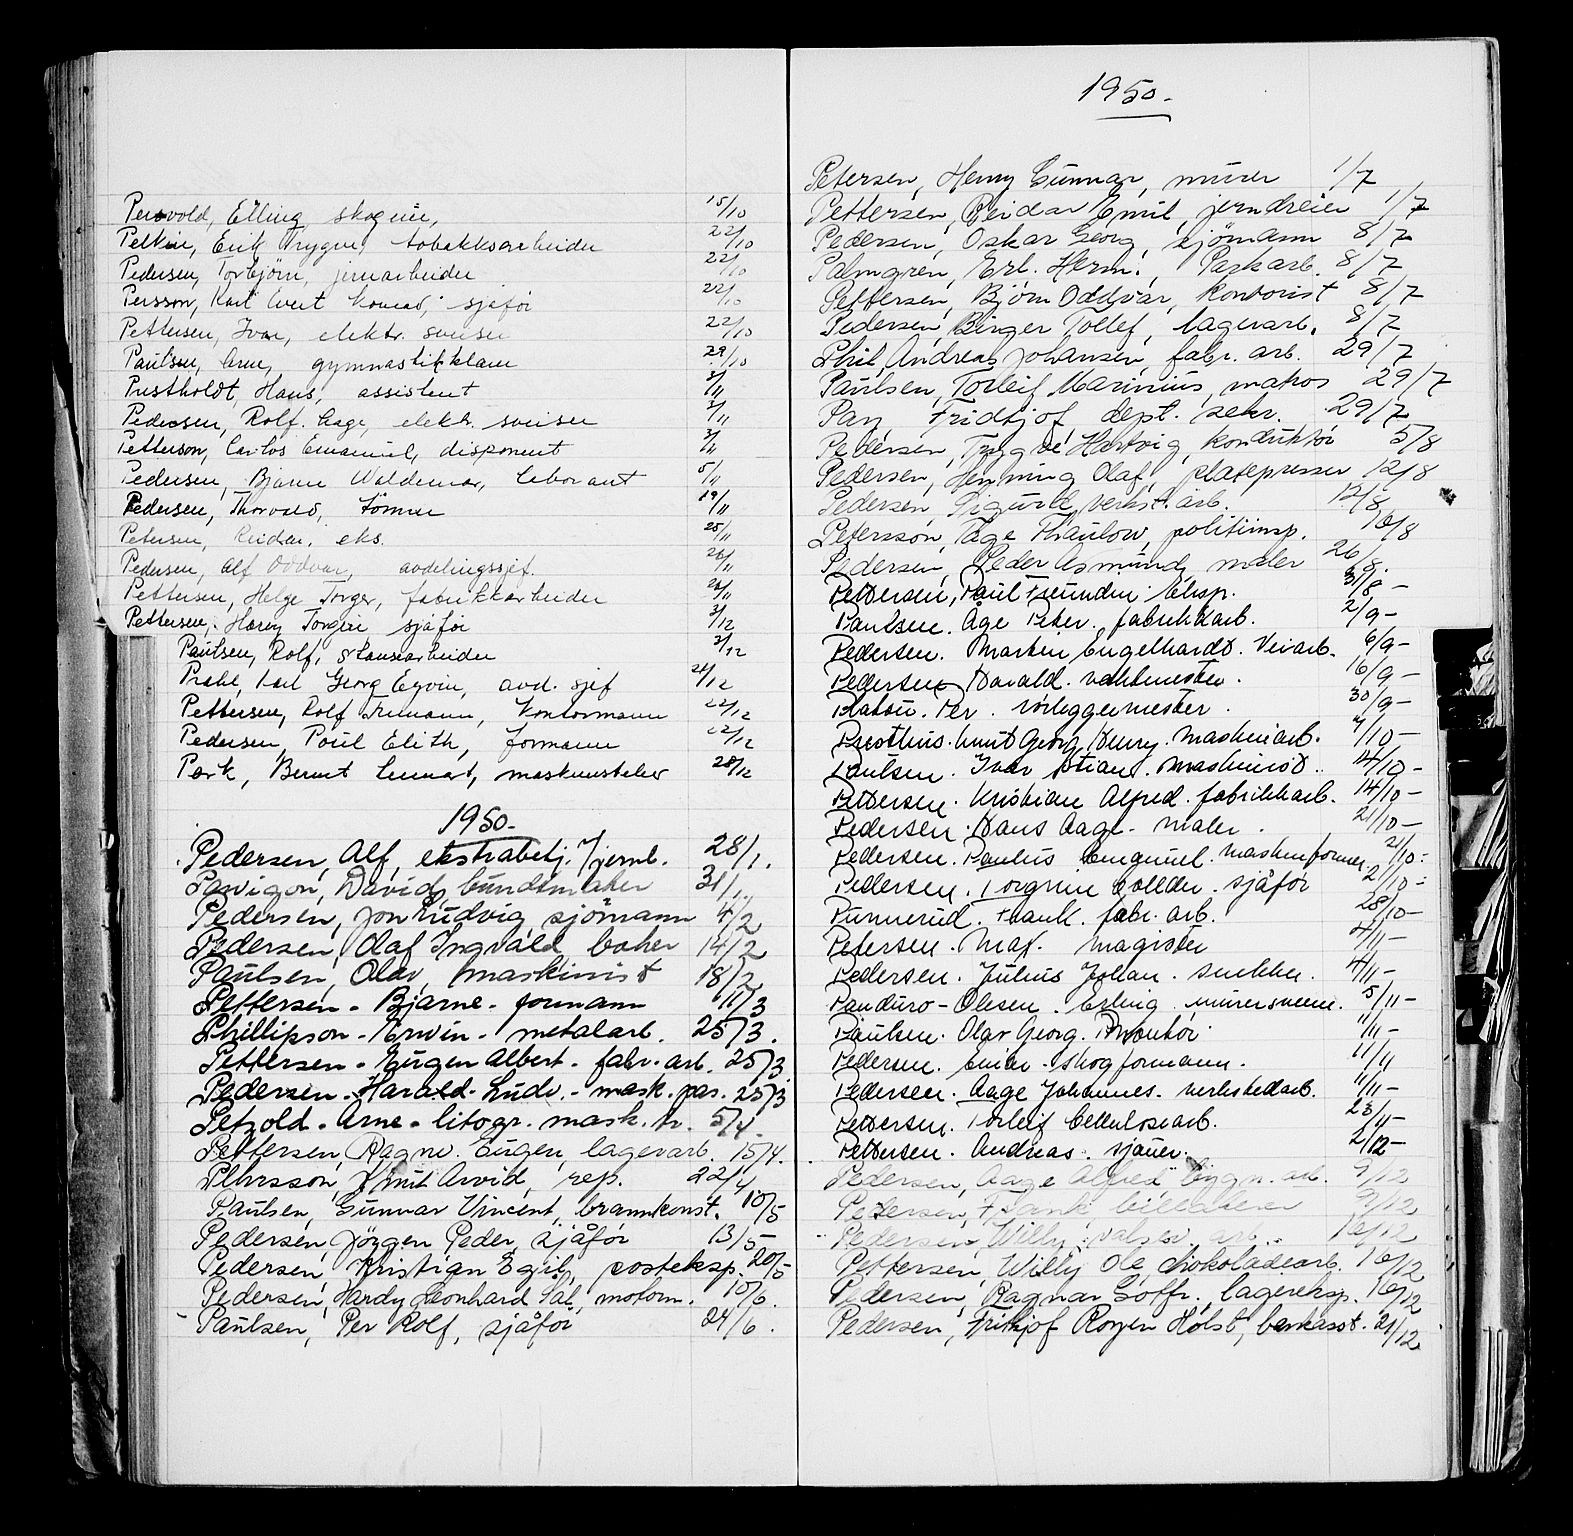 Persvold, Elling, skogeier, 15/10
Erik Trygve, tobakksarbeider 22/10
Pedersen, Torbjörn, jernarbeider 22/10
Persson, Karl Evert Konrad, sjåför 22/10
Pettersen, Ivar, elektr. sveiser 22/10
Paulsen, Arne, gymnastikklærer 29/10
Prestholdt, Hans, assistent 3/11
Pedersen, Rolf Aage, elektr. sveiser 3/11
Petterson, Carlos Emanuel, disponent 3/11
Pedersen, Bjarne Waldemar, laborant 5/11
Pedersen, Thorvald, tömrer 19/11
Petersen, Reidar, eks. 25/11
Pedersen, Alf Oddvar, avdelingssjef. 26/11
Pettersen, Helge Torger, fabrikkarbeider 26/11
Pettersen, Harry Torgeir sjåför 3/12
Paulsen, Rolf, stansearbeider 3/12
Karl Georg Egvin, avd. sjef 21/12
Pettersen, Rolf Hermann, kontormann 22/12
Pedersen, Poul Elith, formann 22/12
Pork, Bernt Lennart, maskinsteler 28/12
1950.
Pedersen, Alf, ekstrabetj. v/jernb. 28/1.
Pavigon, David, buntmaker 31/1.
Pedersen, Jon Ludvig, sjömann 4/2
Pedersen, Olaf Ingvald, baker 14/2
Paulsen, Olav, maskinist 18/2
Pettersen - Bjarne - formann 11/3
Phillipson - Erwin - metalarb. 25/3.
Pettersen - Eugen Albert - fabr. arb. 25/3
Pedersen - Harald Ludv. - mask. pas. 25/3
Petzold - Arne - litogr. mask. tr. 5/4
Pettersen, Ragnv. Eugen, lagerarb. 15/4.
Pehrsson, Knut Arvid, rep. 22/4
Paulsen, Gunnar Vincent, brannkonst. 10/5
Pedersen, Jörgen Peder, sjåför 13/5
Pedersen, Kristian Egil, posteksp. 20/5
Pedersen, Hardy Leonhard Sal., motorm. 10/6.
Paulsen, Per Rolf, sjåför 24/6.
1950.
Petersen, Henry Gunnar, murer 1/7
Pettersen, Reidar Emil, jerndreier 1/7
Pedersen, Oskar Georg, sjömann 8/7
Palmgren, Erl. Herm., Parkarb. 8/7
Pettersen, Björn Oddvar, kontorist 8/7
Pedersen, Birger Tollef, lagerarb. 8/7
Phil, Andreas Johansen, fabr. arb. 29/7
Paulsen, Torleif Marinius, matros 29/7
Pay, Fridtjof, dept. sekr. 29/7
Pedersen, Trygve Hartvig, konduktör 5/8
Pedersen, Henning Olaf, platepresser 12/8
Pedersen, Sigurd, verkst. arb. 12/8
Petersson, Tage Thaulow, politiinsp. 16/8
Pedersen, Peder Asmund, maler 26/8.
Pettersen, Paul Freundin. Eksp. 31/8 -
Paulsen. Åge Peter. fabrikkarb. 2/9 -
Pedersen. Martin Engelhardt. Veiarb. 6/9 -
Pedersen Harald. vaktmester. 16/9 -
Platou. Per. rörleggermester. 30/9 -
Presthus. Knut Georg Henry. Maskinarb. 7/10 -
Paulsen. Ivar Stian. Maskinist.. 14/10 -
Pettersen. Kristian Alfred. fabrikkarb. 14/10 -
Pedersen. Hans Aage. maler. 21/10 -
Pedersen. Paulus Emanuel. Maskinformer. 21/10 -
Pedersen. Torgrim sjåför 21/10 -
Punnerud. Frank. fabr. arb. 28/10 -
Petersen. Max. magister 4/11 -
Pedersen. Julius Johan. snekker. 4/11 -
Panduro - Olesen. Erling. murersvenn. 5/11 -
Paulsen. Olav Georg. Montör. 11/11 -
Pedersen. Einar. skogformann. 11/11
Pedersen. Aage Johannes. verkstedarb. 11/11 -
Pettersen. Torleif Cellulosearb. 23/11 -
Pettersen. Andreas. sjauer. 2/12 -
Pedersen, Aage Alfred, bygn. arb. 9/12
Pedersen, Frank, billedskjærer 9/12
Pedersen, Willy, valsev. arb. 16/12
Pettersen, Willy Ole, sjokoladearb. 16/12
Pedersen, Ragnar Gotfr., lagereksp. 16/12
Pedersen, Fritjof Roger Holst, bankasst. 21/12